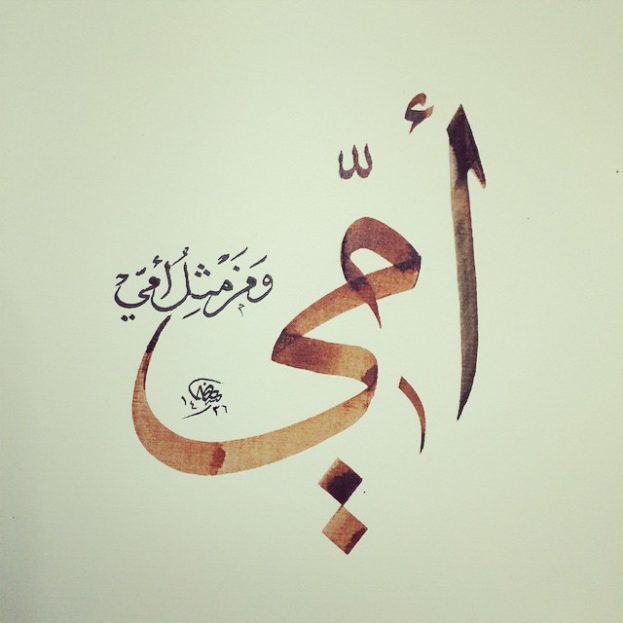 أمّي
وَمَن مْثلُ أمّيْ
١٤٣٦